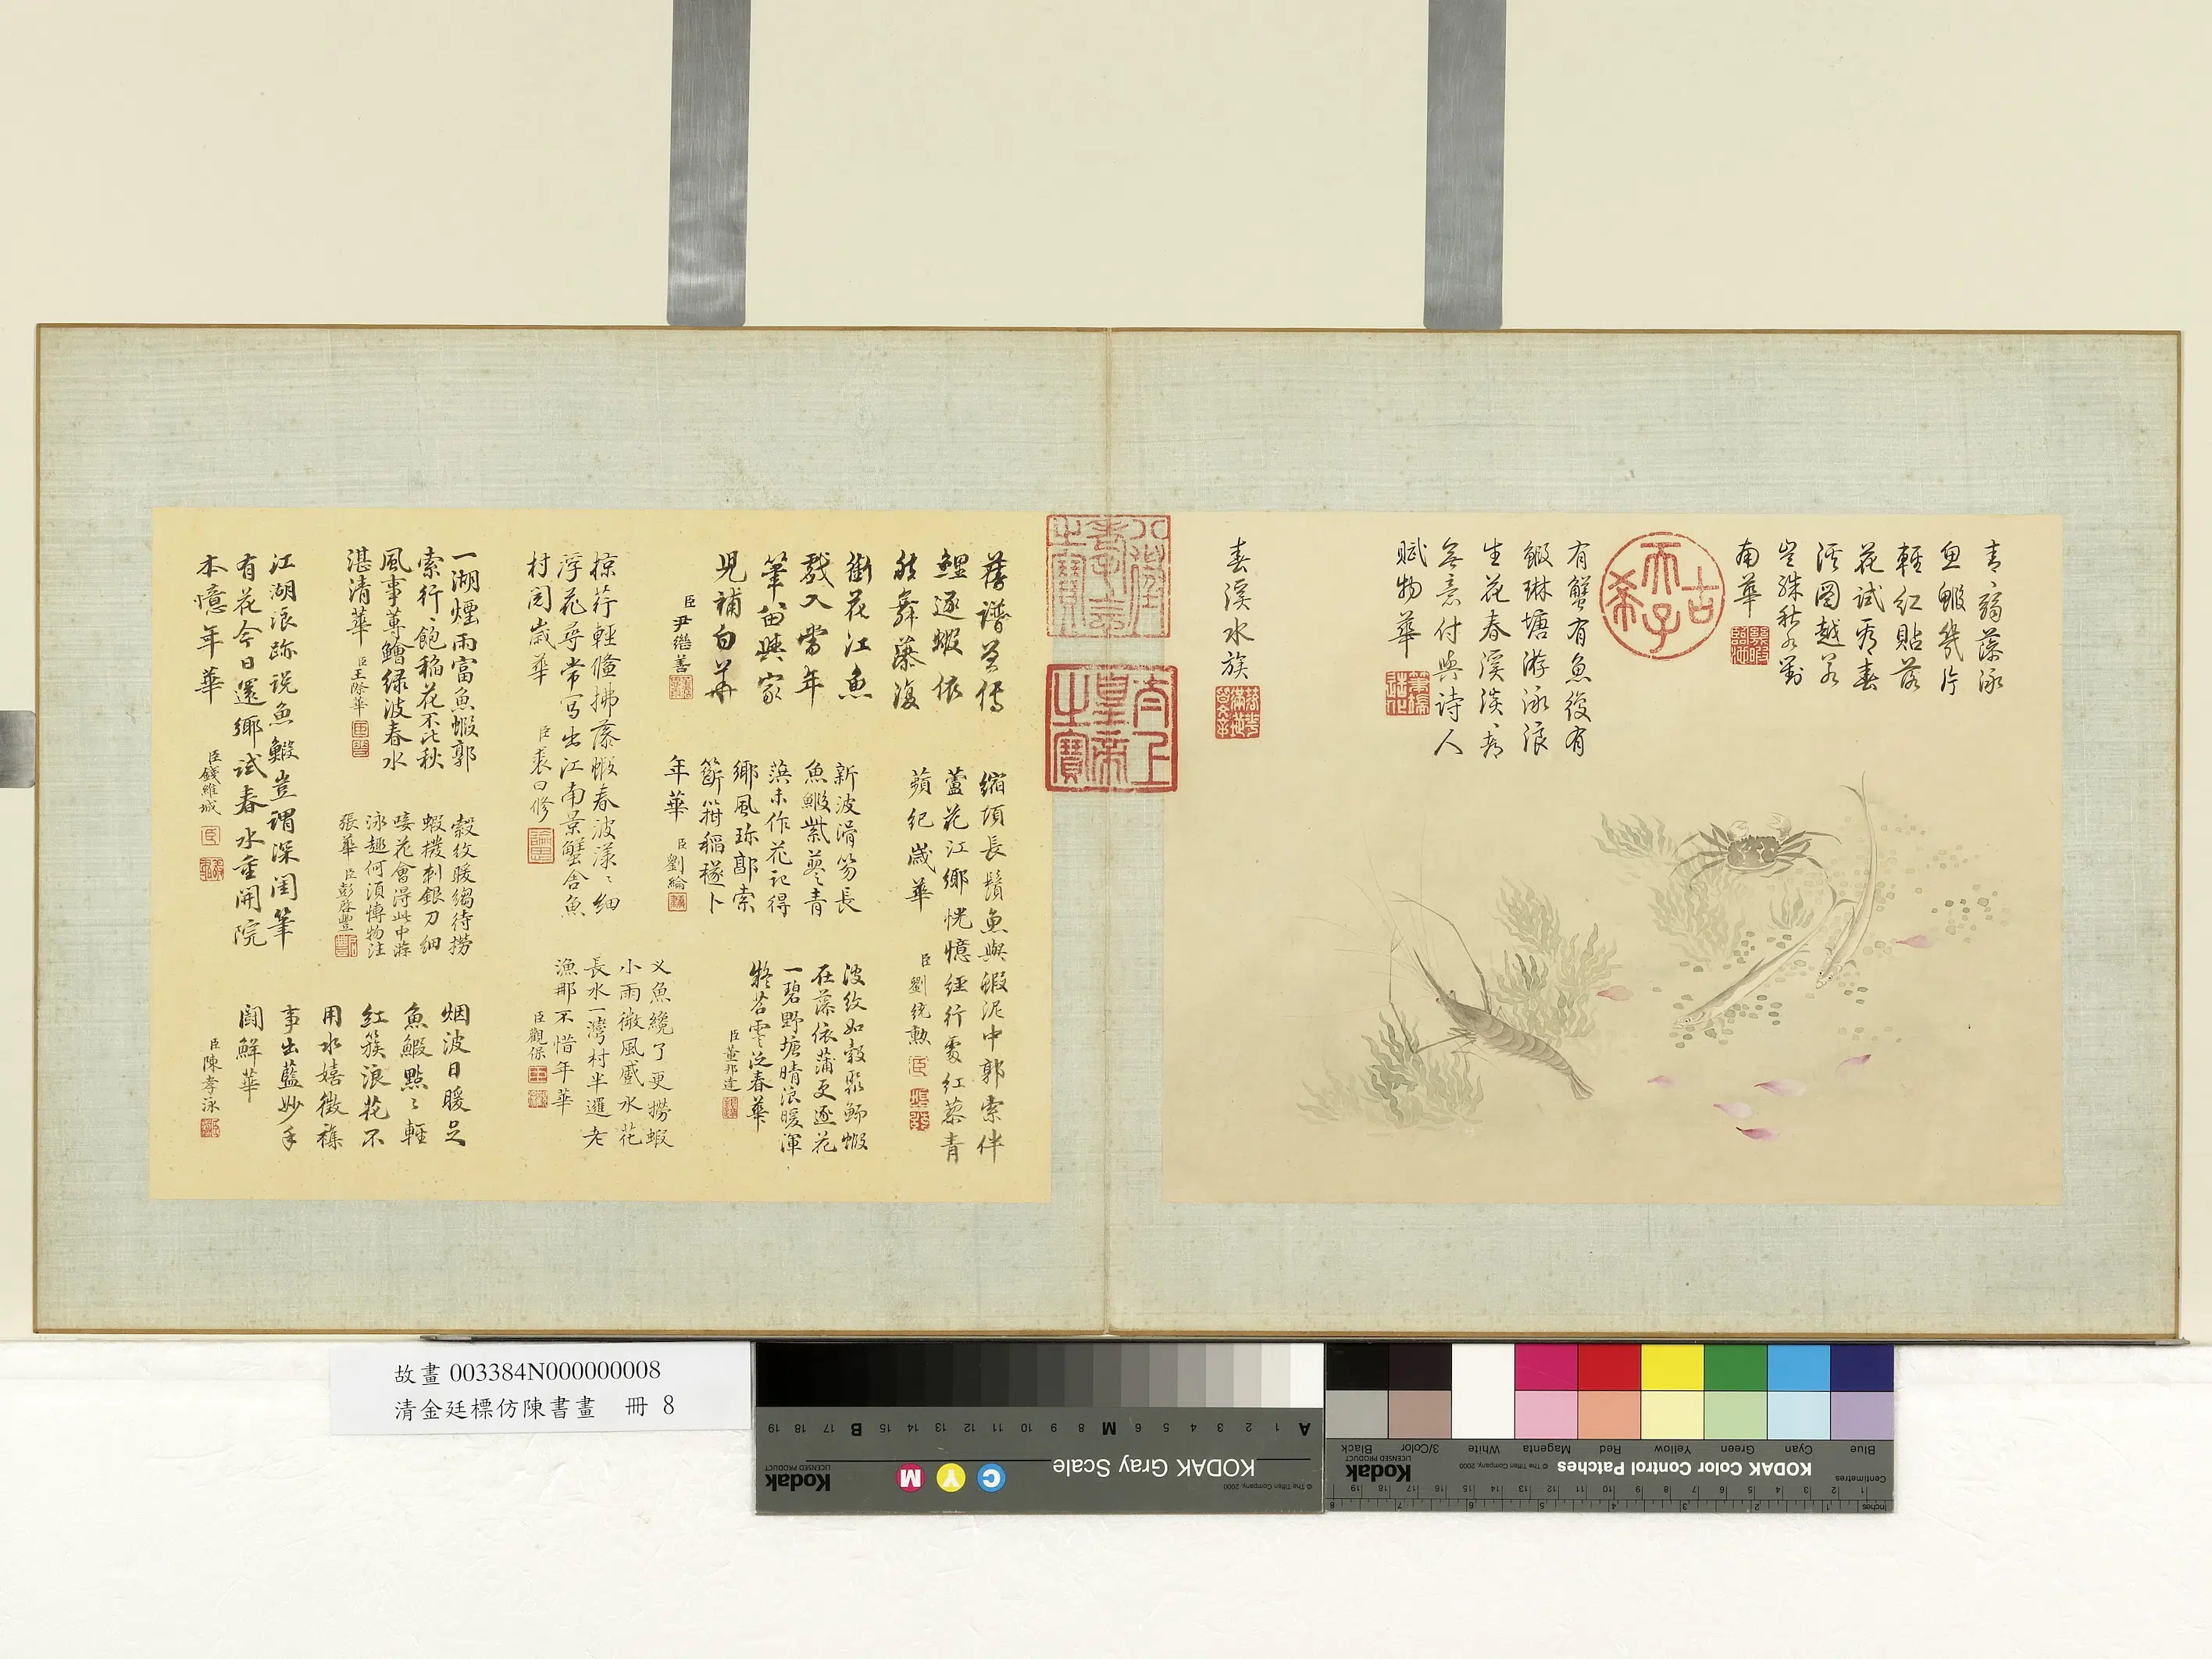 青青弱藻泳
魚鰕幾片
輕紅貼落
花試看春
溪圖越女
豈殊秋水對
南華
古希天子
有蟹有魚復有
鰕琳塘游泳浪
生花春溪淡
無意付與詩人
賦物華
春溪水族
八徵耄念之寶
太上皇帝之寶
舊譜曾傳
鯉逐蝦依
舞藻復
銜花江魚
戲入當年
筆留與家
兒補白華
臣尹繼善
縮項長鬚魚與蝦泥中郭索伴
蘆花江鄉恍憶經行處紅蓼青
蘋紀歲華
臣劉統勳
新波滑笏長
魚鰕紫蓼青
蘋未作花記得
鄉風珍郭索
籪籪稻穟卜
年華
臣劉綸
波紋如縠聚魴蝦
在藻依蒲更逐花
一碧野塘晴浪暖渾
疑苕霅泛春華
臣董邦達
掠荇輕鯈拂藻蝦春波漾漾細
浮花尋常寫出江南景蟹舍魚
村閱歲華
臣裘曰修
乂魚纔了更撈蝦
小雨微風蹙水花
長水一灣村半邏老
漁那不惜年華
臣觀保
一湖煙雨富魚蝦郭
索行行飽稻花不比秋
風事蓴鱠绿波春水
湛清華
臣王際華
縠紋暖縐待撈
蝦機刺銀刀細
唼花會得此中游
泳趣何須博物注
張華
臣彭啓豐
烟波日暖足
魚鰕點點輕
紅簇浪花不
用水嬉徵襍
事出藍妙手
鬪鮮華
臣陳孝泳
江湖浪跡說魚鰕豈謂深閨筆
有花今日還鄉試春水重開院
本憶年華
臣錢維城
故畫 003384N000000008
清金廷標仿陳書畫 冊 8
KODAK Gray Scale
Kodak
LICENSED PRODUCT
© The Tiffen Company, 2000
C Y M
A 1 2 3 4 5 6 M 8 9 10 11 12 13 14 15 B 17 18 19
KODAK Color Control Patches
Kodak
LICENSED PRODUCT
© The Tiffen Company, 2000
Blue Cyan Green Yellow Red Magenta White 3/Color Black
Centimetres
Inches